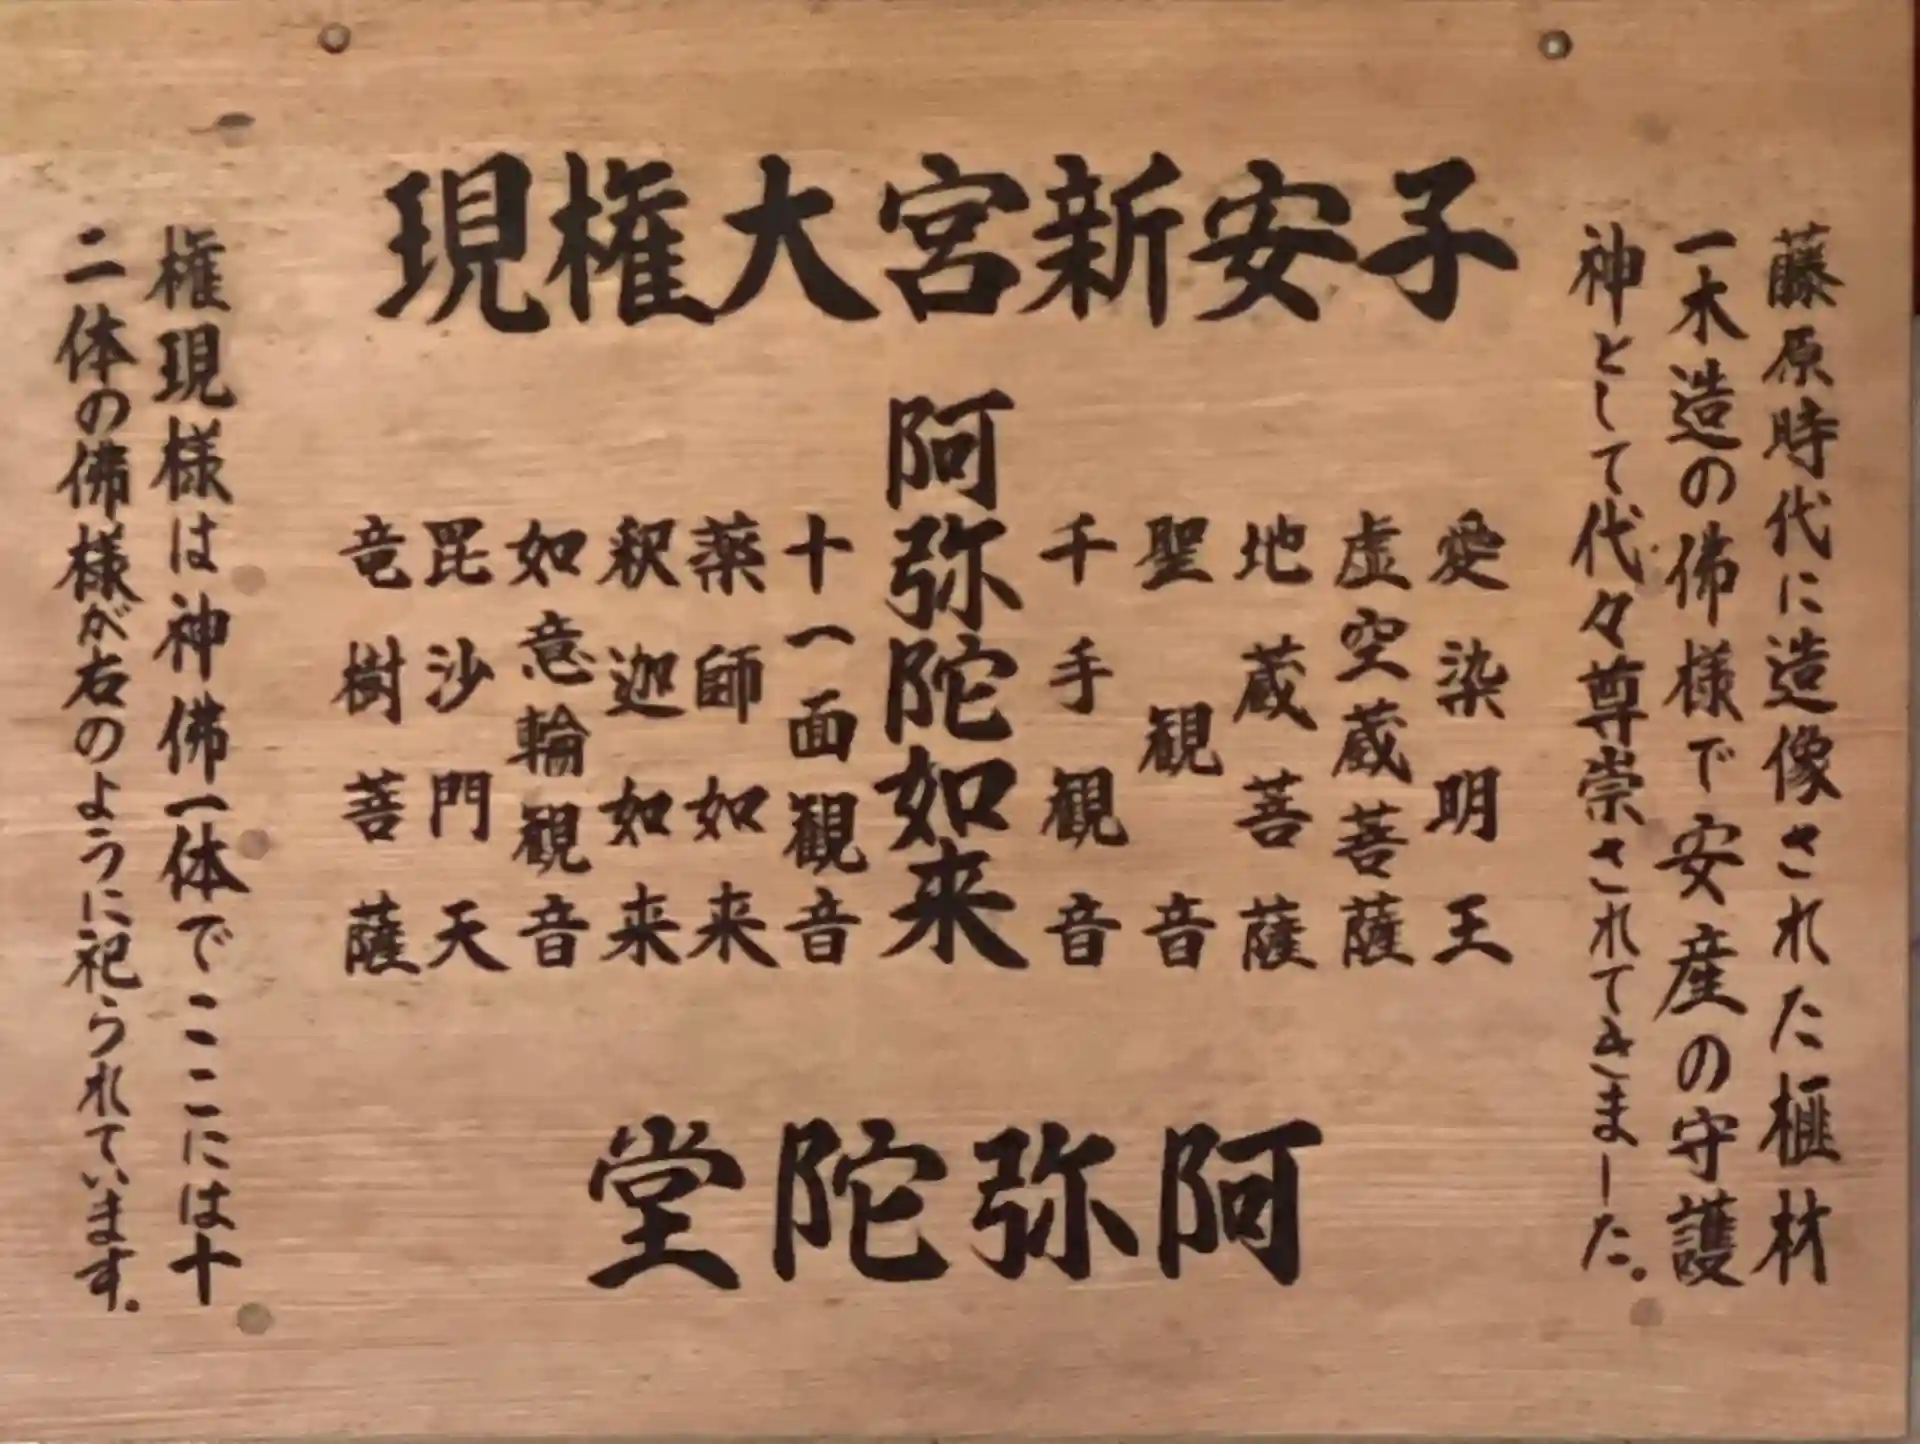 藤原時代に造像された榧材
一木造の佛様で安産の守護
神として代々尊崇されてきました。
子安新宮大権現
愛染明王
虚空蔵菩薩
地蔵菩薩
聖観音
千手観音
阿弥陀如来
十一面観音
薬師如来
釈迦如来
如意輪観音
毘沙門天
竜樹菩薩
阿弥陀堂
権現様は神佛一体でここには十
二体の佛様が右のように祀られています。